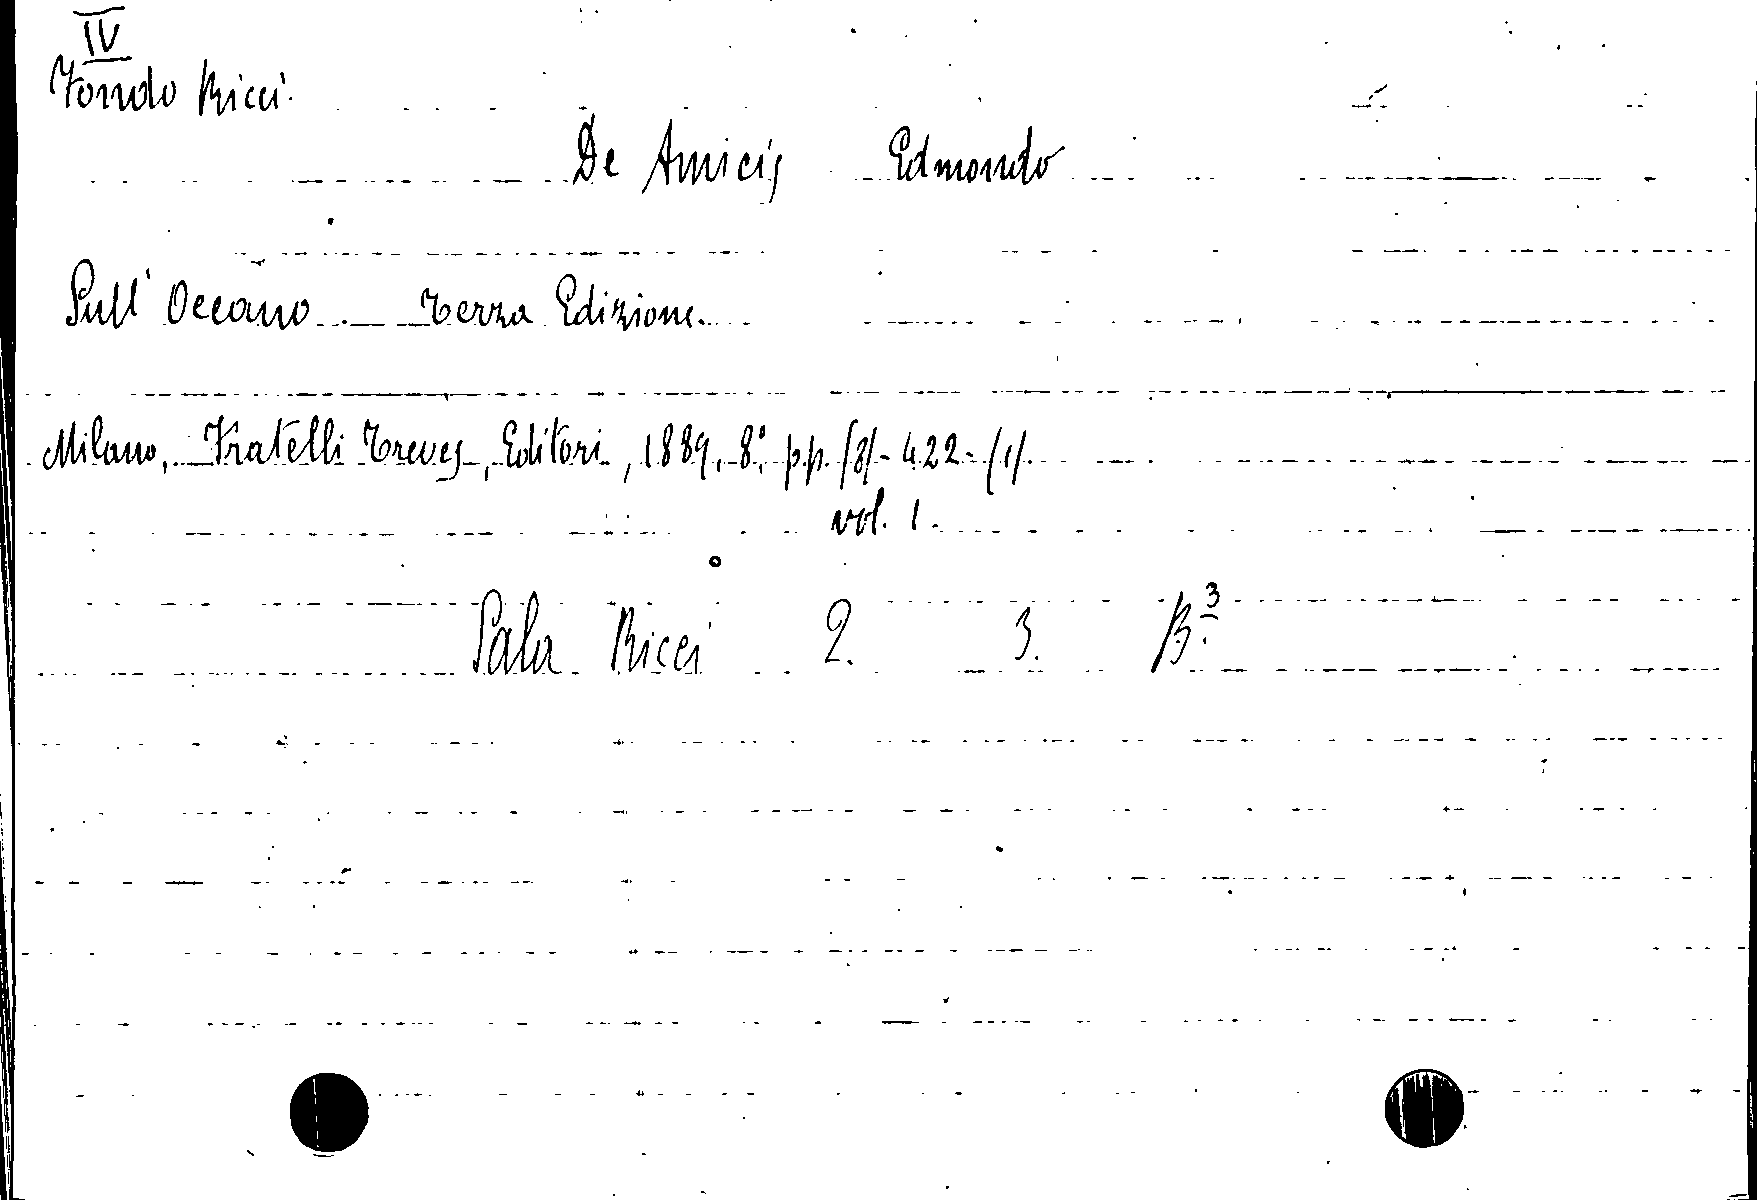 IV
Fondo Ricci.
De Amicis Edmondo
Sull' Oceano. Terza Edizione.
Milano, Fratelli Treves, Editori, 1889, 8°, pp. (8)-422-(1).
vol. 1.
Sala Ricci 2. 3. B.³